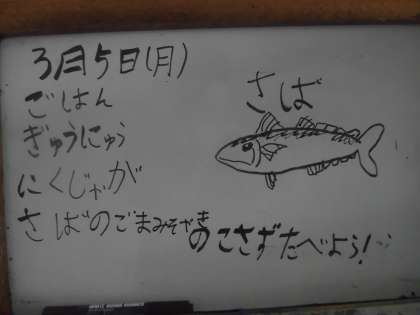 3月5日(月)
ごはん
ぎゅうにゅう
にくじゃが
さばのごまみそやき
さば
のこさずたべよう!